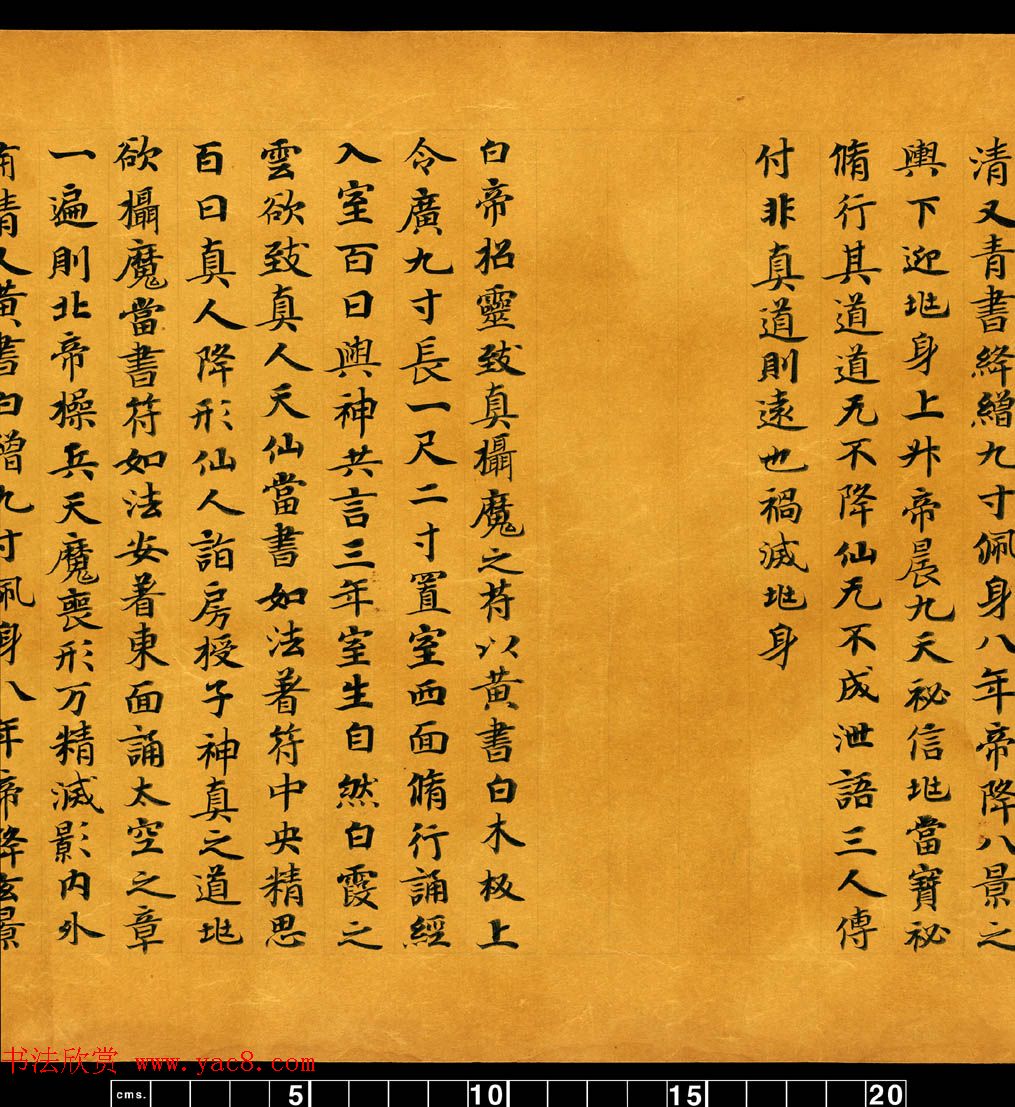 清又青書絳繒九寸佩身八年帝降八景之
輿下迎兆身上升帝晨九天祕信兆當寶祕
脩行其道道无不降仙无不成泄語三人傳
付非真道則遠也禍滅兆身
白帝招靈致真攝魔之苻以黃書白木板上
令廣九寸長一尺二寸置室西面脩行誦經
入室百日與神共言三年室生自然白霞之
雲欲致真人天仙當書如法著符中央精思
百日真人降形仙人詣房授子神真之道兆
欲攝魔當書符如法安著東面誦太空之章
一遍則北帝操兵天魔喪形万精滅影內外
清又黃書白繒九寸佩身八年帝降玄景
书法欣赏 www.yac8.com
cms. 5 10 15 20